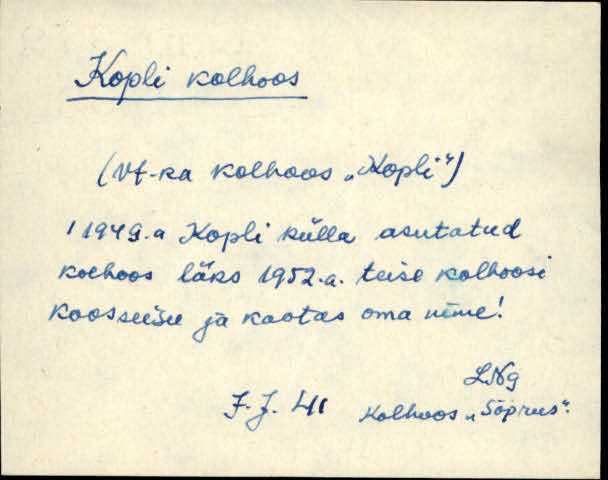 Kopli kolhoos
(Vt-ka kolhoos „Kopli")
1949.a Kopli külla asutatud
kolhoos läks 1952.a. teise kolhoosi
koosseisu ja kaotas oma nime!
LNg
J.J. 41 Kolhoos „Sõprus".